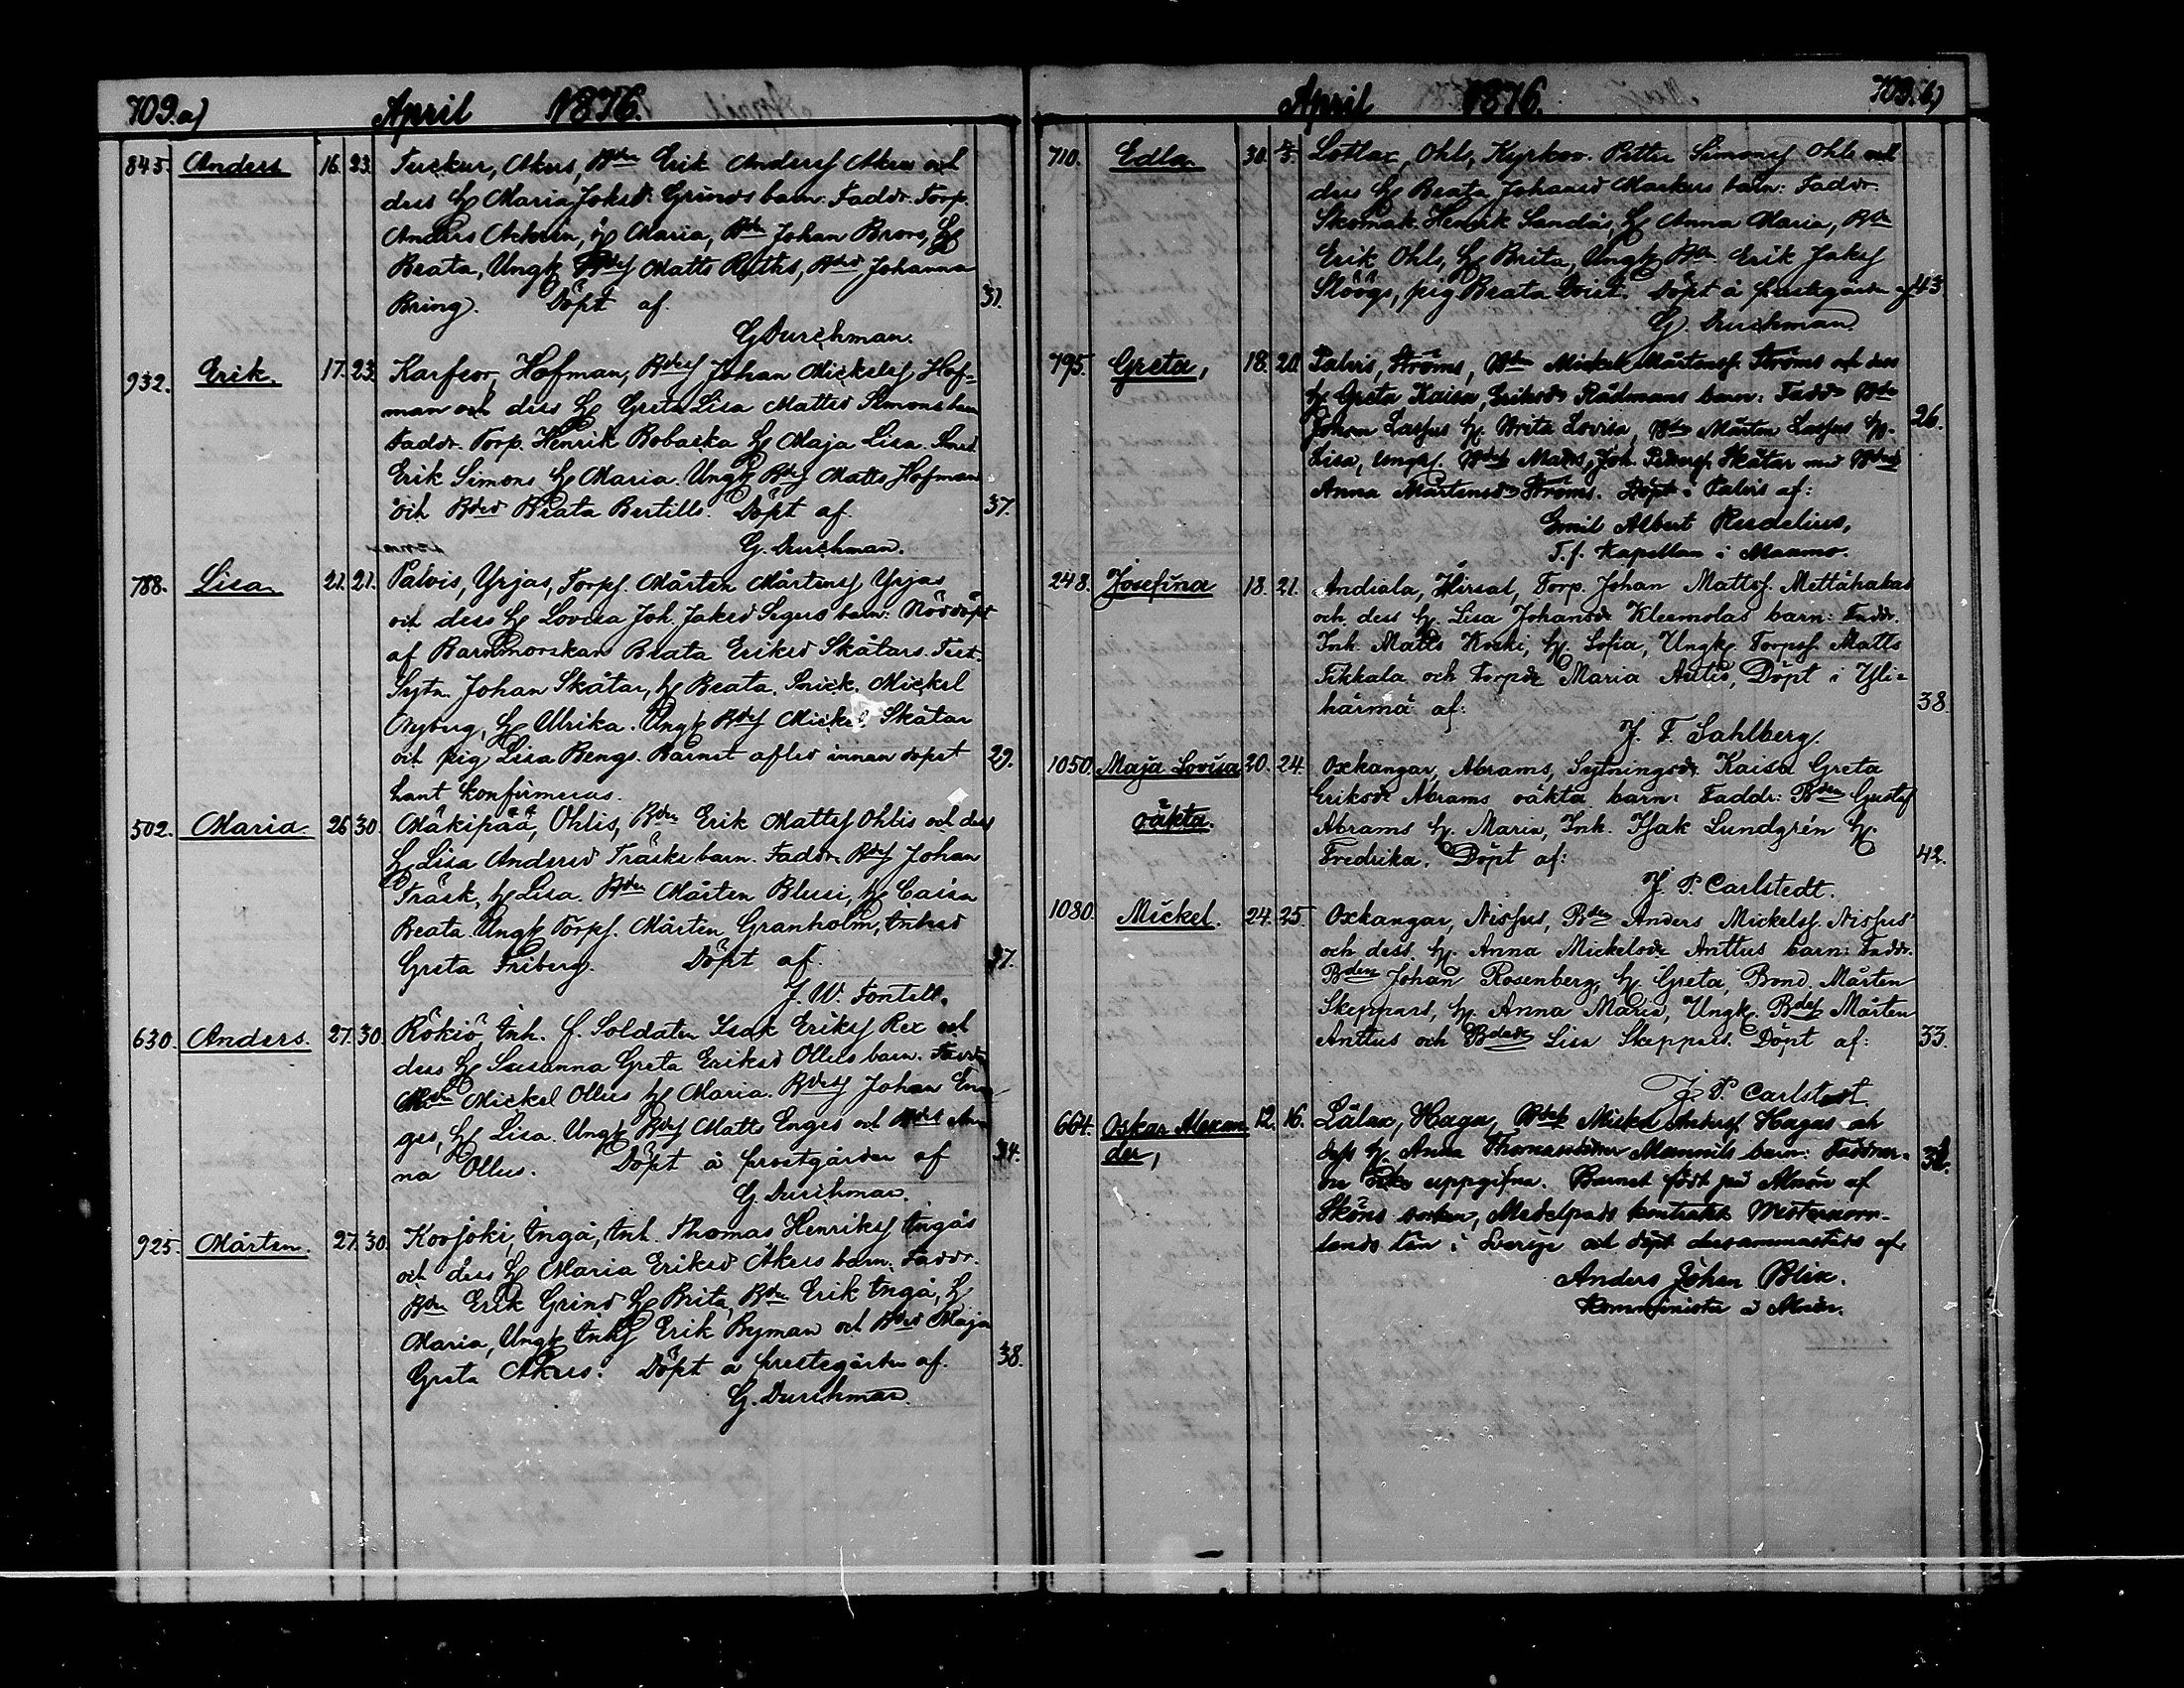 709.a) April 1876.
845. Anders 16. 23. Tuckur, Akers, Bdn Erik Andersf Akers och
dess H. Maria Jaksd. Grinds barn. Faddr. Torp.
Anders Ackrén, H. Maria, Bdn Johan Brors, H.
Beata, Ungk. Bdsf Matts Ruths, Bdsd Johanna
Bring. Döpt af. 31.
G Durchman.
932. Erik. 17. 23. Karfsor, Hofman, Bdesf Johan Mickelsf Hof-
man och dess H. Greta Lisa Mattsd Simons barn
Faddr. Torp. Henrik Bobacka H. Maja Lisa. Smed.
Erik Simons H. Maria. Ungk. Bdsf Matts Hofman
och Bdsd Beata Bertills. Döpt af. 37.
G. Durchman.
788. Lisa. 21. 21. Palvis, Yrjas, Torpf. Mårten Mårtensf Yrjas
och dess H. Lovisa Joh. Jaksd Segers barn. Nöddöpt
af Barnmorskan Beata Eriksd Skåtars. Test.
Sytn. Johan Skåtar, H. Beata. Snick. Mickel
Nyberg, H. Ulrika. Ungk. Bdsf Mickel Skåtar
och pig. Lisa Bengs. Barnet afled innan dopet 29.
hant konfirmeras.
502. Maria. 26 30. Mäkipää, Ohlis, Bdn Erik Mattsf Ohlis och dess
H. Lisa Andersd Träsks barn. Faddr. Bdsf Johan
Träsk, H. Lisa. Bdn Mårten Blusi, H. Caisa
Beata. Ungk. Torpf. Mårten Granholm, Inhsd
Greta Friberg. Döpt af. 37.
J. W. Fontell.
630. Anders. 27. 30. Rökiö, Inh. f. Soldaten Isak Eriksf Rex och
dess H. Susanna Greta Eriksd Ollus barn. Faddr.
Bdn Mickel Ollus H. Maria. Bdesf Johan En-
ges, H. Lisa. Ungk. Bdsf Matts Enges och Bdsd An-
na Ollus. Döpt å prestgården af 34.
G. Durchman.
925. Mårten. 27. 30. Kovjoki, Ingå, Inh. Thomas Henriksf Ingås
och dess H. Maria Eriksd Åkers barn. Faddr.
Bdn Erik Grind H. Brita, Bdn Erik Ingå, H.
Maria, Ungk. Inhsf Erik Byman och Bdsd Maja
Greta Akers. Döpt å prestegården af. 38.
G. Durchman.
April 1876. 709. b)
710. Edla. 30. Lotlax, Ohls, Kyrkov. Petter Simonsf Ohls och
dess H. Beata Johansd Markus barn: Faddr.
Skomak. Henrik Sandås, H. Anna Maria, Bdn
Erik Ohls, H. Brita, Ungk. Bdn Erik Jaksf
Slöögs, pig. Beata Qvist. Döpt å prestegården af 43
G. Durchman.
795. Greta, 18. 20. Palvis, Ströms, Bdn Mickel Mårtensf. Ströms och dess
H. Greta Kaisa, Eriksdr Rådmans barn: Faddr Bdn
Johan Lassus H. Brita Lovisa, Bdn Mårten Lassus H. 26.
Lisa, Ungk. Bdsf Matts Joh. Pettersf. Skåtar med Bdsd
Anna Mårtensdr Ströms. Döpt i Palvis af:
Emil Albert Rudelius,
T.f. Kapellan i Maxmo.
248. Josefina 18. 21. Andiala, Hirsal, Torp. Johan Mattsf. Mettähakas
och dess H. Lisa Johansdr Kleemolas barn: Faddr.
Inh. Matts Koski, H. Sofia, Ungk. Torpsf. Matts
Tikkala och Torpdr Maria Anttis, Döpt i Yli-
härmä af: 38.
J. F. Sahlberg.
1050. Maja Lovisa 20. 24. Oxkangar, Abrams, Sytningsdr Kaisa Greta
Eriksdr Abrams oäkta barn: Faddr: Bden Gustaf
oäkta. Abrams H. Maria, Inh. Isak Lundgrén H.
Fredrika. Döpt af: 42.
J. P. Carlstedt.
1080. Mickel. 24. 25. Oxkangar, Nissus, Bden Anders Mickelsf. Nissus
och dess H. Anna Mickelsdr Anttus barn: Faddr.
Bden Johan Rosenberg, H. Greta, Bond. Mårten
Skeppars, H. Anna Maria, Ungk. Bdesf Mårten
Anttus och Bdesdr Lisa Skeppars. Döpt af: 33.
J. P. Carlstedt.
664. Oskar Alexan 12. 16. Lålax, Haga, Bdsf Mickel Andersf Hagas och
der, dess H. Anna Thomasdotter Mannils barn: Faddrar-
ne icke uppgifna. Barnet födt på Alnön af
Sköns socken, Medelpads kontrakt Westernorr-
lands län i Sverge och döpt dersammastädes af
Anders Johan Blix.
Komminister å Alnön.